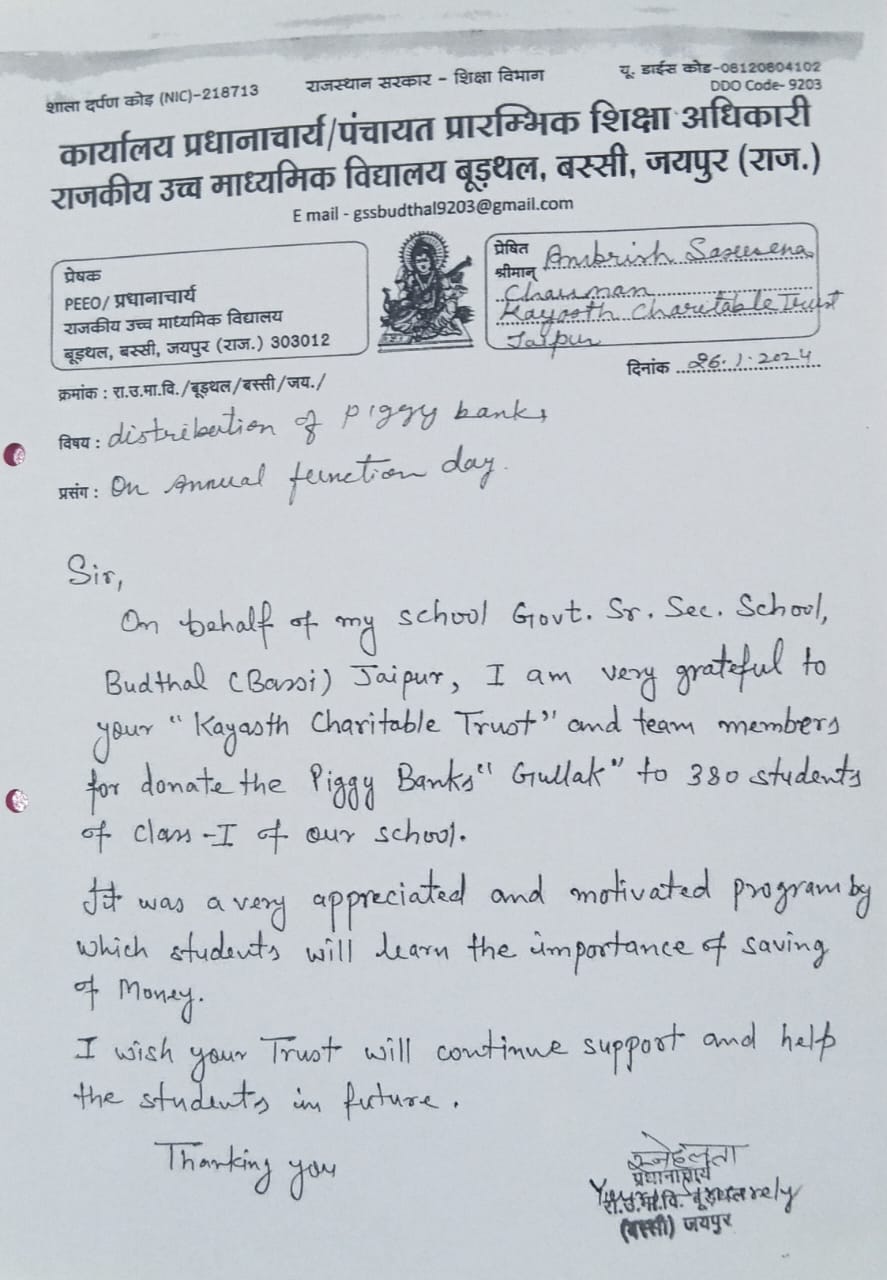 शाला दर्पण कोड़ (NIC)-218713
राजस्थान सरकार - शिक्षा विभाग
यू. डाईस कोड-08120804102
DDO Code- 9203
कार्यालय प्रधानाचार्य/पंचायत प्रारम्भिक शिक्षा अधिकारी
राजकीय उच्च माध्यमिक विद्यालय बूड़थल, बस्सी, जयपुर (राज.)
E mail - gssbudthal9203@gmail.com
प्रेषक
PEEO/ प्रधानाचार्य
राजकीय उच्च माध्यमिक विद्यालय
बूड़थल, बस्सी, जयपुर (राज.) 303012
प्रेषित
श्रीमान् Ambrish Saxena
Chairman
Kayasth Charitable Trust
Jaipur
दिनांक 26.1.2024
क्रमांक : रा.उ.मा.वि./बूड़थल/बस्सी/जय./
विषय : distribution of piggy banks
प्रसंग : On Annual function day.
Sir,
On behalf of my school Govt. Sr. Sec. School,
Budthal (Bassi) Jaipur, I am very grateful to
your "Kayasth Charitable Trust" and team members
for donate the Piggy Banks "Gullak" to 380 students
of Class-I of our school.
It was a very appreciated and motivated program by
which students will learn the importance of saving
of Money.
I wish your Trust will continue support and help
the students in future.
Thanking you
स्नेहलता
प्रधानाचार्य
रा.उ.मा.वि. बूड़थल
(बस्सी) जयपुर